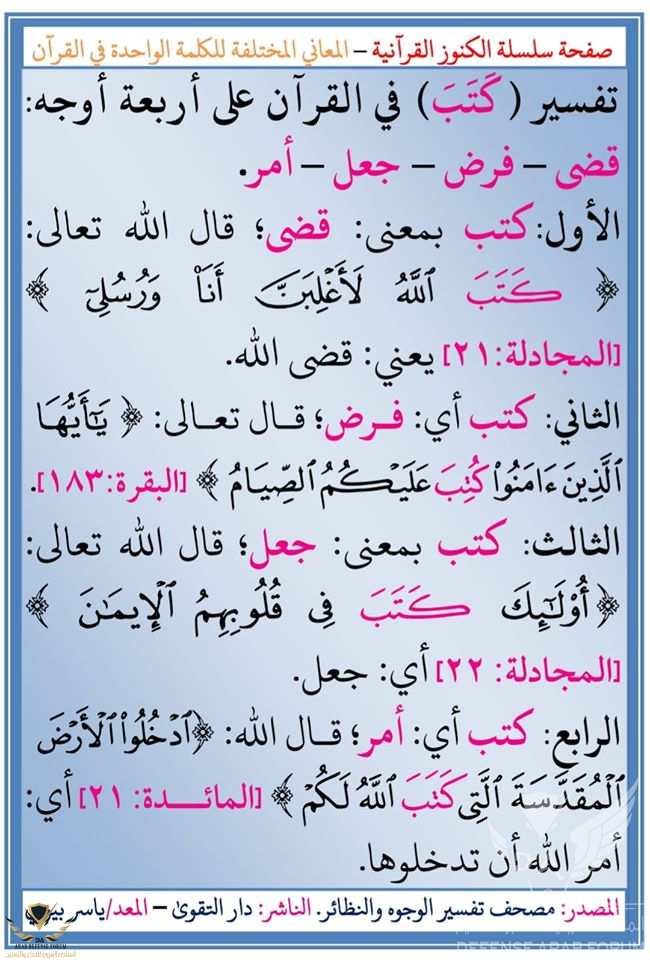 صفحة سلسلة الكنوز القرآنية – المعاني المختلفة للكلمة الواحدة في القرآن
تفسير (كَتَبَ) في القرآن على أربعة أوجه:
قضى – فرض – جعل – أمر.
الأول: كتب بمعنى: قضى؛ قال الله تعالى:
﴿ كَتَبَ ٱللَّهُ لَأَغۡلِبَنَّ أَنَا۠ وَرُسُلِيٓ ﴾
[المجادلة: ٢١] يعني: قضى الله.
الثاني: كتب أي: فرض؛ قال تعالى: ﴿ يَٰٓأَيُّهَا
ٱلَّذِينَ ءَامَنُواْ كُتِبَ عَلَيۡكُمُ ٱلصِّيَامُ ﴾ [البقرة: ١٨٣].
الثالث: كتب بمعنى: جعل؛ قال الله تعالى:
﴿ أُوْلَٰٓئِكَ كَتَبَ فِي قُلُوبِهِمُ ٱلۡإِيمَٰنَ ﴾
[المجادلة: ٢٢] أي: جعل.
الرابع: كتب أي: أمر؛ قال الله: ﴿ ٱدۡخُلُواْ ٱلۡأَرۡضَ
ٱلۡمُقَدَّسَةَ ٱلَّتِي كَتَبَ ٱللَّهُ لَكُمۡ ﴾ [المائدة: ٢١] أي:
أمر الله أن تدخلوها.
المصدر: مصحف تفسير الوجوه والنظائر. الناشر: دار التقوى – المعد/ياسر
ARAB DEFENSE FORUM
المنتدى العربي للدفاع والتسليح
DEFENSE ARAB FORUM